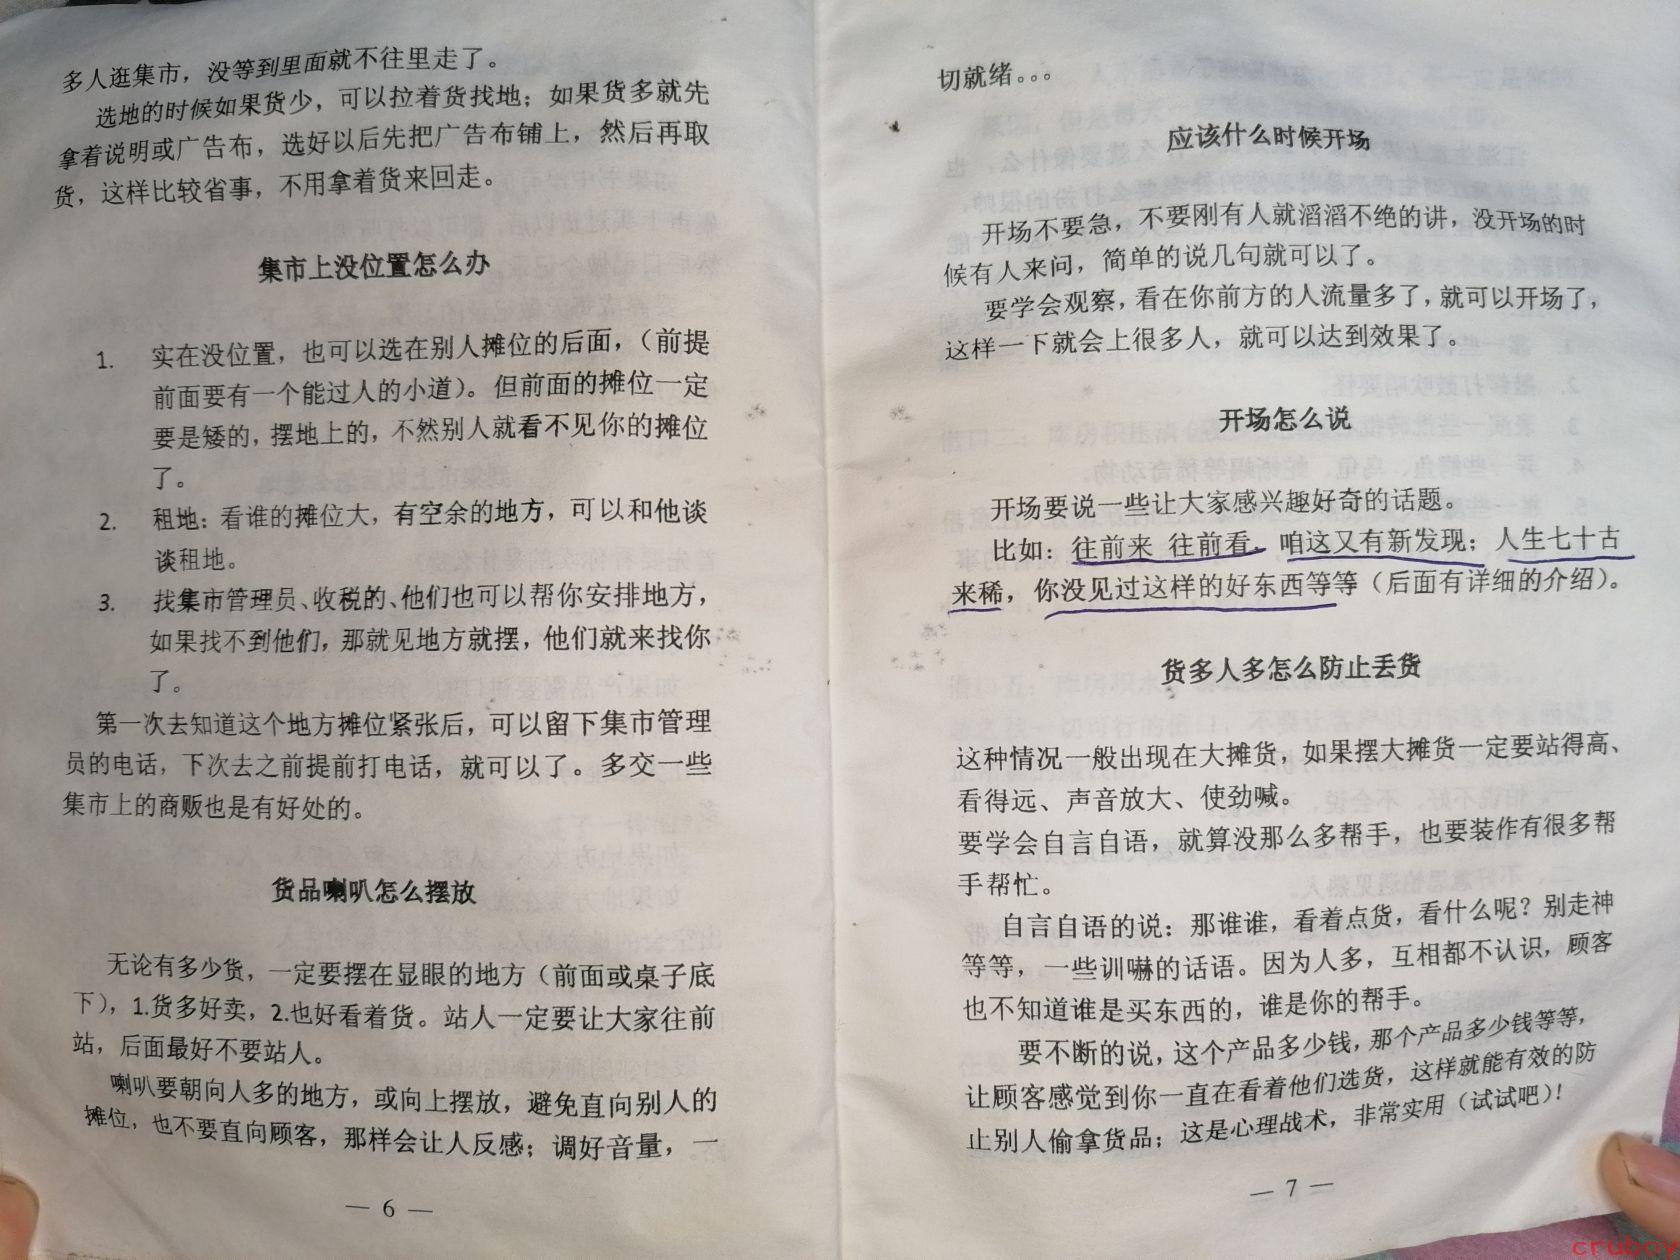 多人逛集市，没等到里面就不往里走了。
选地的时候如果货少，可以拉着货找地；如果货多就先
拿着说明或广告布，选好以后先把广告布铺上，然后再取
货，这样比较省事，不用拿着货来回走。
集市上没位置怎么办
1. 实在没位置，也可以选在别人摊位的后面，（前提
前面要有一个能过人的小道）。但前面的摊位一定
要是矮的，摆地上的，不然别人就看不见你的摊位
了。
2. 租地：看谁的摊位大，有空余的地方，可以和他谈
谈租地。
3. 找集市管理员、收税的、他们也可以帮你安排地方，
如果找不到他们，那就见地方就摆，他们就来找你
了。
第一次去知道这个地方摊位紧张后，可以留下集市管理
员的电话，下次去之前提前打电话，就可以了。多交一些
集市上的商贩也是有好处的。
货品喇叭怎么摆放
无论有多少货，一定要摆在显眼的地方（前面或桌子底
下），1.货多好卖，2.也好看着货。站人一定要让大家往前
站，后面最好不要站人。
喇叭要朝向人多的地方，或向上摆放，避免直向别人的
摊位，也不要直向顾客，那样会让人反感；调好音量，一
— 6 —
切就绪。。。
应该什么时候开场
开场不要急，不要刚有人就滔滔不绝的讲，没开场的时
候有人来问，简单的说几句就可以了。
要学会观察，看在你前方的人流量多了，就可以开场了，
这样一下就会上很多人，就可以达到效果了。
开场怎么说
开场要说一些让大家感兴趣好奇的话题。
比如：往前来 往前看，咱这又有新发现；人生七十古
来稀，你没见过这样的好东西等等（后面有详细的介绍）。
货多人多怎么防止丢货
这种情况一般出现在大摊货，如果摆大摊货一定要站得高、
看得远、声音放大、使劲喊。
要学会自言自语，就算没那么多帮手，也要装作有很多帮
手帮忙。
自言自语的说：那谁谁，看着点货，看什么呢？别走神
等等，一些训嚇的话语。因为人多，互相都不认识，顾客
也不知道谁是买东西的，谁是你的帮手。
要不断的说，这个产品多少钱，那个产品多少钱等等，
让顾客感觉到你一直在看着他们选货，这样就能有效的防
止别人偷拿货品；这是心理战术，非常实用（试试吧）！
— 7 —